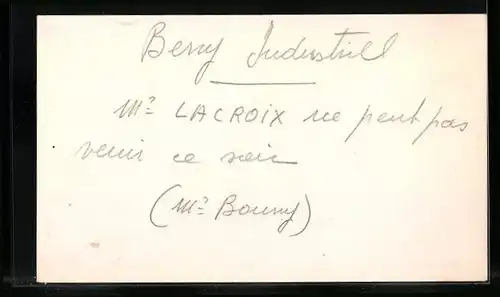 Berry Industriel
Mr LACROIX ne peut pas
venir ce soir
(Mr Bouny)